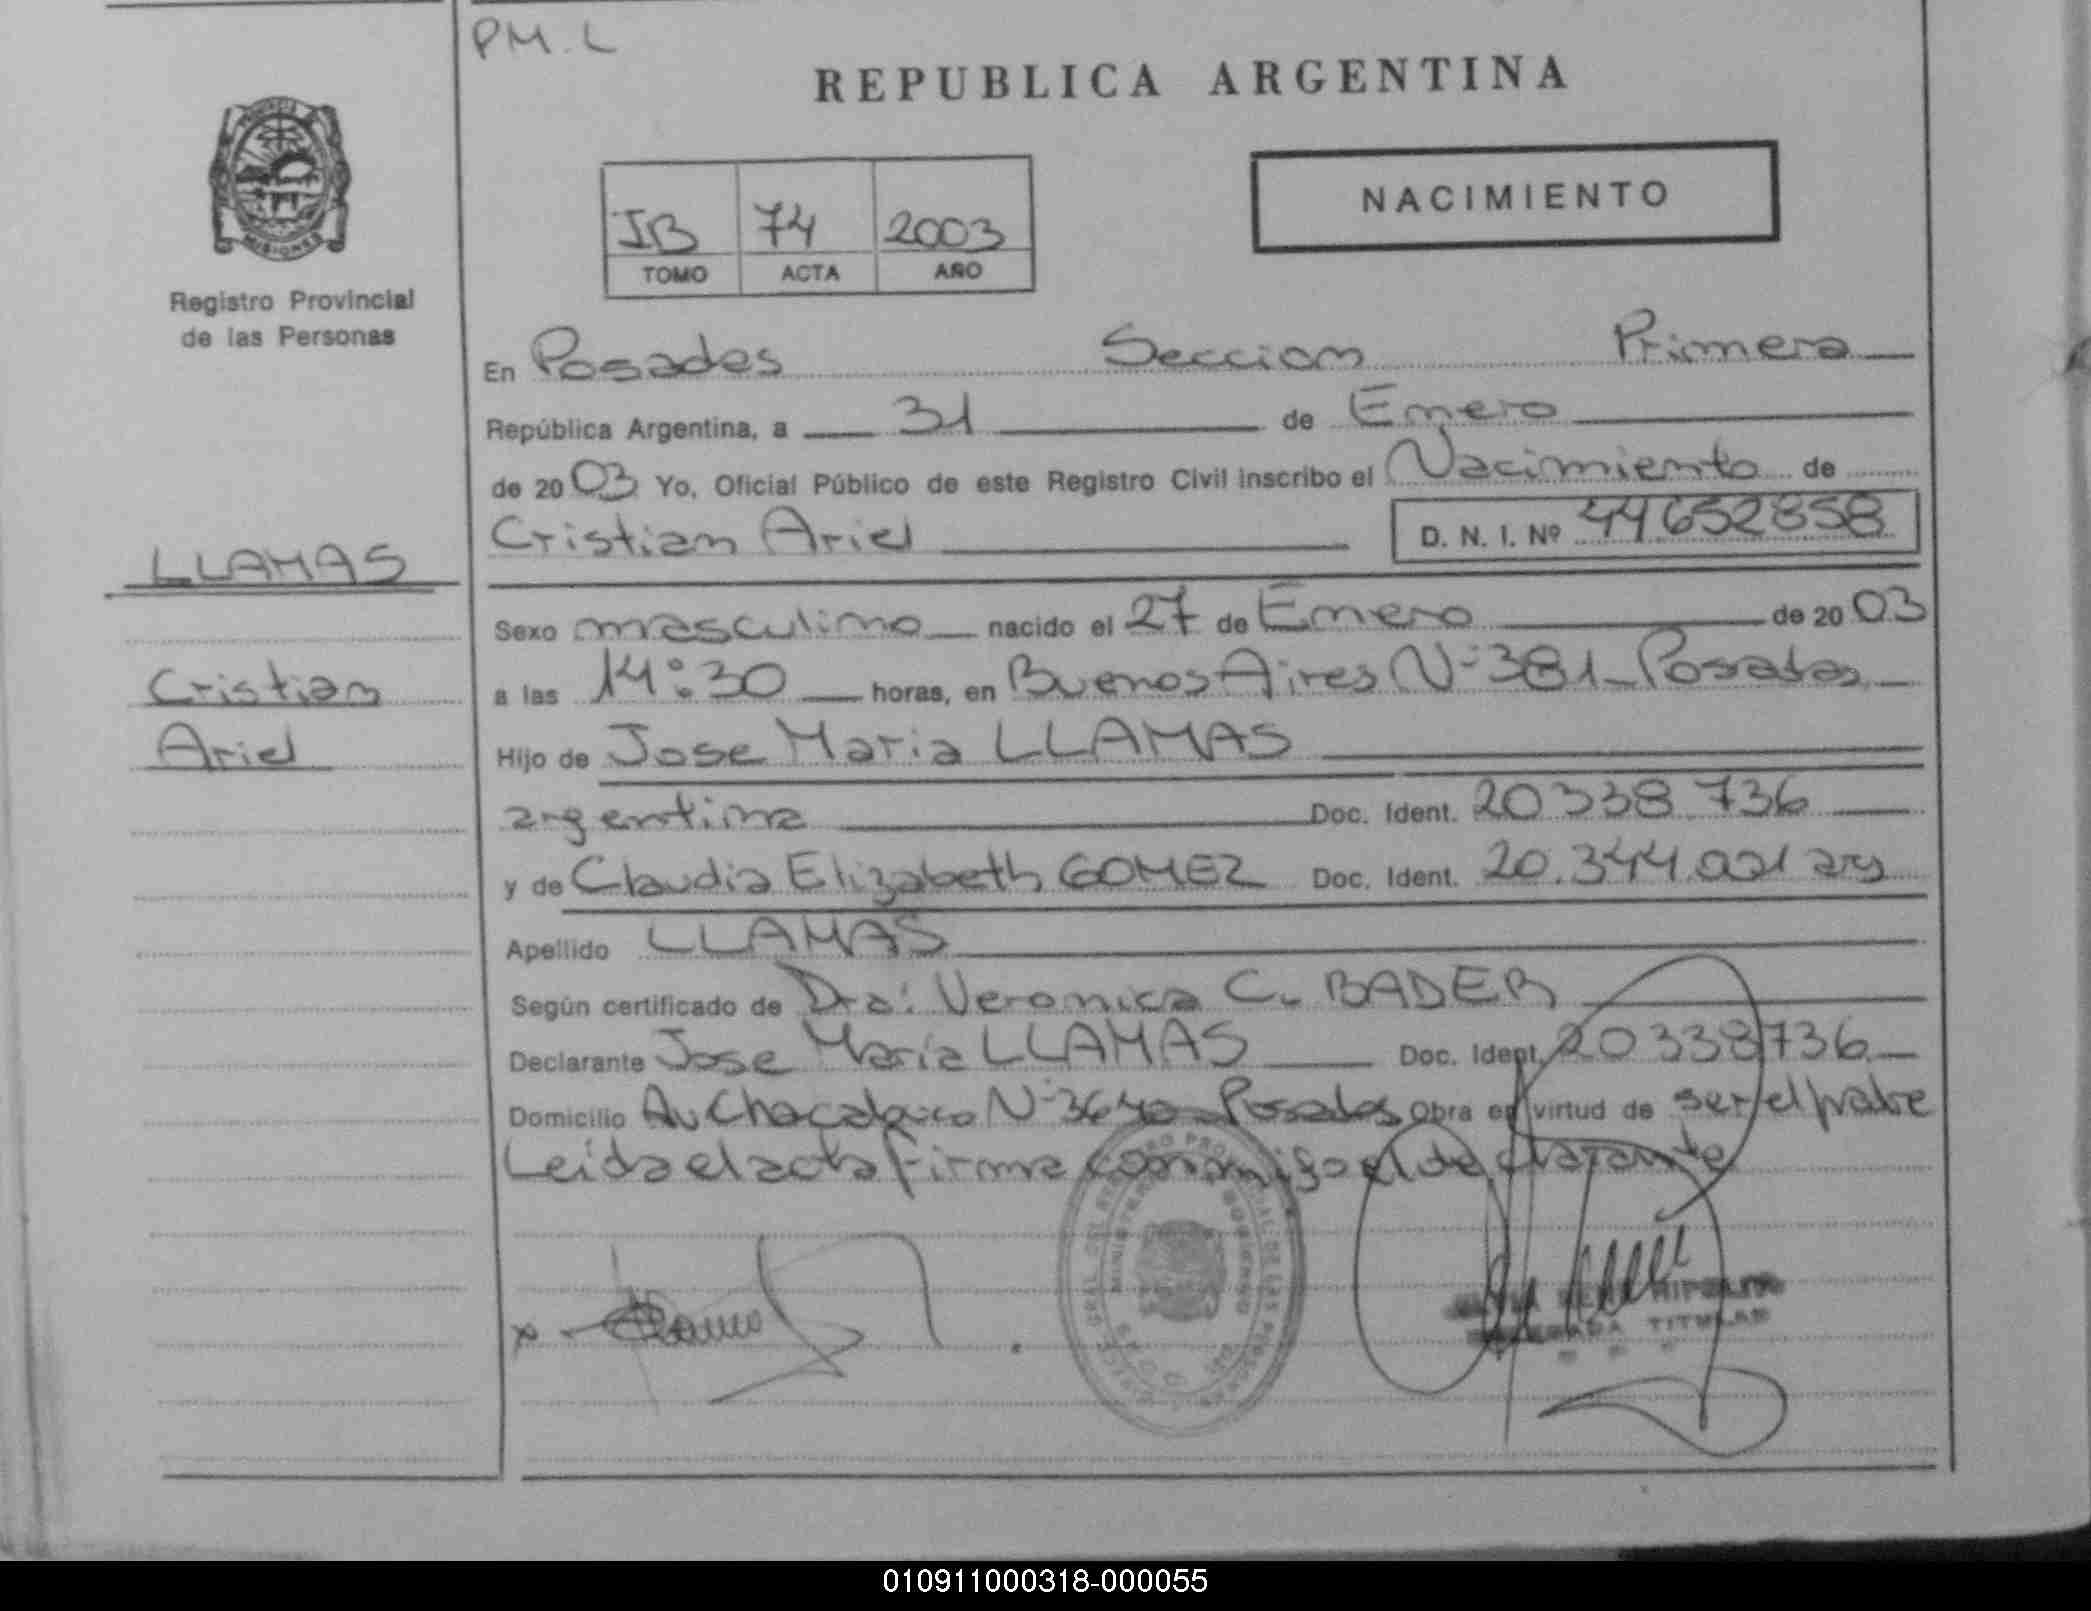 PM. L
REPUBLICA ARGENTINA
NACIMIENTO
IB 74 2003
TOMO ACTA AÑO
Registro Provincial
de las Personas
En Posadas Seccion Primera
República Argentina, a 31 de Enero
de 2003 Yo, Oficial Público de este Registro Civil inscribo el Nacimiento de
Cristian Ariel D. N. I. Nº 44652858
LLAMAS
Cristian
Ariel
Sexo masculino nacido el 27 de Enero de 2003
a las 14:30 horas, en Buenos Aires Nº 381 - Posadas
Hijo de Jose Maria LLAMAS
argentina Doc. Ident. 20338736
y de Claudia Elizabeth GOMEZ Doc. Ident. 20.344.001 arg
Apellido LLAMAS
Según certificado de Dra: Veronica C. BADER
Declarante Jose Maria LLAMAS Doc. Ident. 20338736
Domicilio Av Chacabuco Nº 3640 - Posadas Obra en virtud de ser el padre
Leida el acta firma conmigo el declarante
TITULAR
010911000318-000055